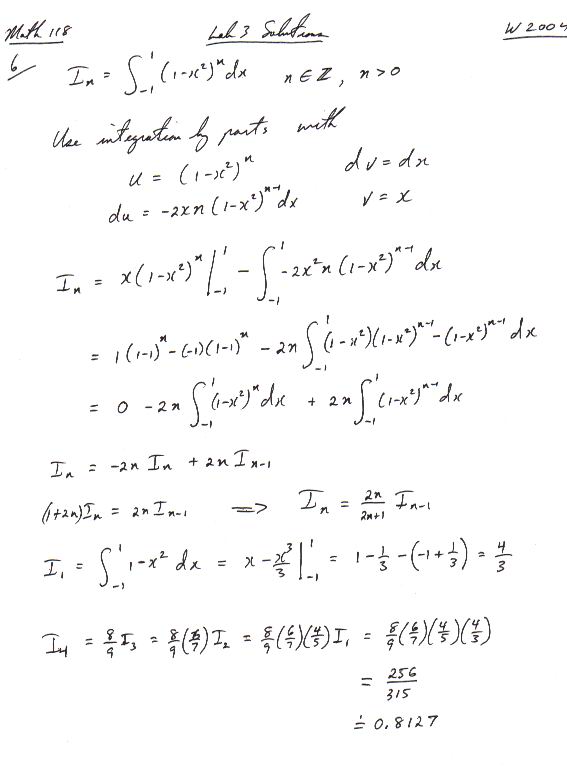 Math 118 Lab 3 Solutions W 2004
6/ Iₙ = ∫₋₁¹ (1-x²)ⁿ dx n ∈ ℤ, n > 0
Use integration by parts with
u = (1-x²)ⁿ dv = dx
du = -2xn(1-x²)ⁿ⁻¹dx v = x
Iₙ = x(1-x²)ⁿ|₋₁¹ - ∫₋₁¹ -2x²n(1-x²)ⁿ⁻¹ dx
= 1(1-1)ⁿ - (-1)(1-1)ⁿ - 2n ∫₋₁¹ (1-x²)(1-x²)ⁿ⁻¹ - (1-x²)ⁿ⁻¹ dx
= 0 - 2n ∫₋₁¹ (1-x²)ⁿ dx + 2n ∫₋₁¹ (1-x²)ⁿ⁻¹ dx
Iₙ = -2n Iₙ + 2n Iₙ₋₁
(1+2n)Iₙ = 2n Iₙ₋₁ => Iₙ = 2n/(2n+1) Iₙ₋₁
I₁ = ∫₋₁¹ 1-x² dx = x - x³/3 |₋₁¹ = 1 - 1/3 - (-1 + 1/3) = 4/3
I₄ = 8/9 I₃ = 8/9 (6/7) I₂ = 8/9 (6/7)(4/5) I₁ = 8/9 (6/7)(4/5)(4/3)
= 256/315
≐ 0.8127